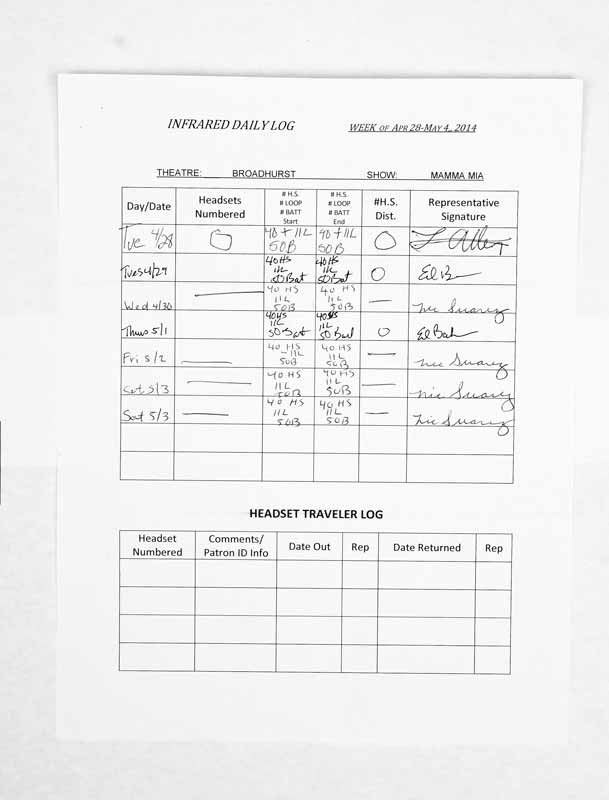 INFRARED DAILY LOG WEEK OF APR 28-MAY 4, 2014
THEATRE: BROADHURST SHOW: MAMMA MIA
Day/Date Headsets Numbered # H.S. # LOOP # BATT Start # H.S. # LOOP # BATT End #H.S. Dist. Representative Signature
Tue 4/28 O 40 + 11L 50B 40 + 11L 50B O
Tues 4/29 40 HS 11L 50 Bat 40 HS 11L 50 Bat O
Wed 4/30 — 40 HS 11L 50B 40 HS 11L 50B — Nic Suarez
Thurs 5/1 40 HS 11L 50 Bat 40 HS 11L 50 Bat O
Fri 5/2 — 40 HS 11L 50B 40 HS 11L 50B — Nic Suarez
Sat 5/3 — 40 HS 11L 50B 40 HS 11L 50B — Nic Suarez
Sat 5/3 — 40 HS 11L 50B 40 HS 11L 50B — Nic Suarez
HEADSET TRAVELER LOG
Headset Numbered Comments/ Patron ID Info Date Out Rep Date Returned Rep